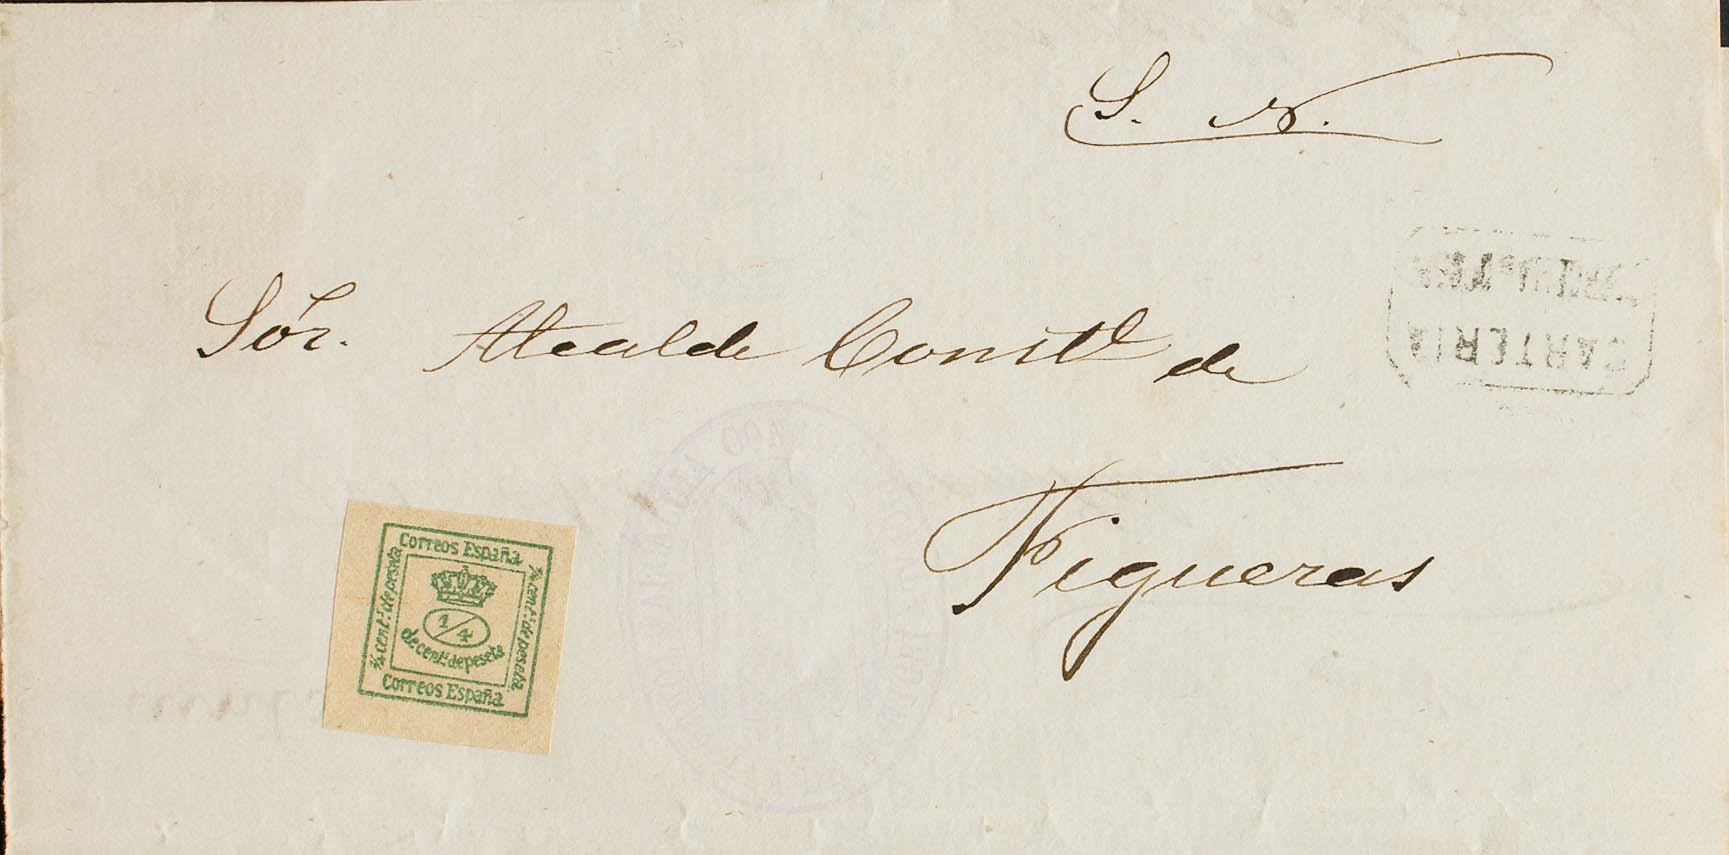 S. N.
Sór. Alcalde Constl de
Figueras
CARTERIA
Correos España
1/4 cents de peseta
1/4 cents de peseta
1/4
de cents de peseta
Correos España